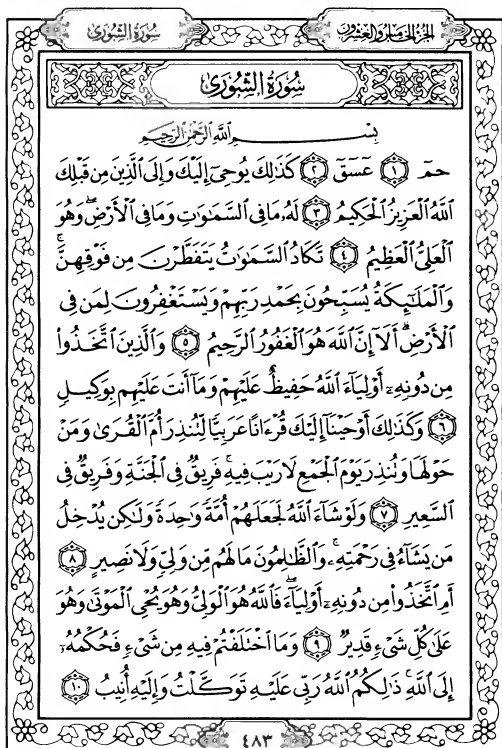 سُورَةُ الشُّورَىٰ
الجُزْءُ الخَامِسُ وَالعِشْرُونَ
سُورَةُ الشُّورَىٰ
بِسْمِ اللَّهِ الرَّحْمَٰنِ الرَّحِيمِ
حمٓ ١ عٓسٓقٓ ٢ كَذَٰلِكَ يُوحِىٓ إِلَيْكَ وَإِلَى ٱلَّذِينَ مِن قَبْلِكَ
ٱللَّهُ ٱلْعَزِيزُ ٱلْحَكِيمُ ٣ لَهُۥ مَا فِى ٱلسَّمَٰوَٰتِ وَمَا فِى ٱلْأَرْضِۖ وَهُوَ
ٱلْعَلِىُّ ٱلْعَظِيمُ ٤ تَكَادُ ٱلسَّمَٰوَٰتُ يَتَفَطَّرْنَ مِن فَوْقِهِنَّۚ
وَٱلْمَلَٰٓئِكَةُ يُسَبِّحُونَ بِحَمْدِ رَبِّهِمْ وَيَسْتَغْفِرُونَ لِمَن فِى
ٱلْأَرْضِۗ أَلَآ إِنَّ ٱللَّهَ هُوَ ٱلْغَفُورُ ٱلرَّحِيمُ ٥ وَٱلَّذِينَ ٱتَّخَذُوا۟
مِن دُونِهِۦٓ أَوْلِيَآءَ ٱللَّهُ حَفِيظٌ عَلَيْهِمْ وَمَآ أَنتَ عَلَيْهِم بِوَكِيلٍ
٦ وَكَذَٰلِكَ أَوْحَيْنَآ إِلَيْكَ قُرْءَانًا عَرَبِيًّا لِّتُنذِرَ أُمَّ ٱلْقُرَىٰ وَمَنْ
حَوْلَهَا وَتُنذِرَ يَوْمَ ٱلْجَمْعِ لَا رَيْبَ فِيهِۚ فَرِيقٌ فِى ٱلْجَنَّةِ وَفَرِيقٌ فِى
ٱلسَّعِيرِ ٧ وَلَوْ شَآءَ ٱللَّهُ لَجَعَلَهُمْ أُمَّةً وَٰحِدَةً وَلَٰكِن يُدْخِلُ
مَن يَشَآءُ فِى رَحْمَتِهِۦۚ وَٱلظَّٰلِمُونَ مَا لَهُم مِّن وَلِىٍّ وَلَا نَصِيرٍ ٨
أَمِ ٱتَّخَذُوا۟ مِن دُونِهِۦٓ أَوْلِيَآءَۖ فَٱللَّهُ هُوَ ٱلْوَلِىُّ وَهُوَ يُحْىِ ٱلْمَوْتَىٰ وَهُوَ
عَلَىٰ كُلِّ شَىْءٍ قَدِيرٌ ٩ وَمَا ٱخْتَلَفْتُمْ فِيهِ مِن شَىْءٍ فَحُكْمُهُۥٓ
إِلَى ٱللَّهِۚ ذَٰلِكُمُ ٱللَّهُ رَبِّى عَلَيْهِ تَوَكَّلْتُ وَإِلَيْهِ أُنِيبُ ١٠
٤٨٣